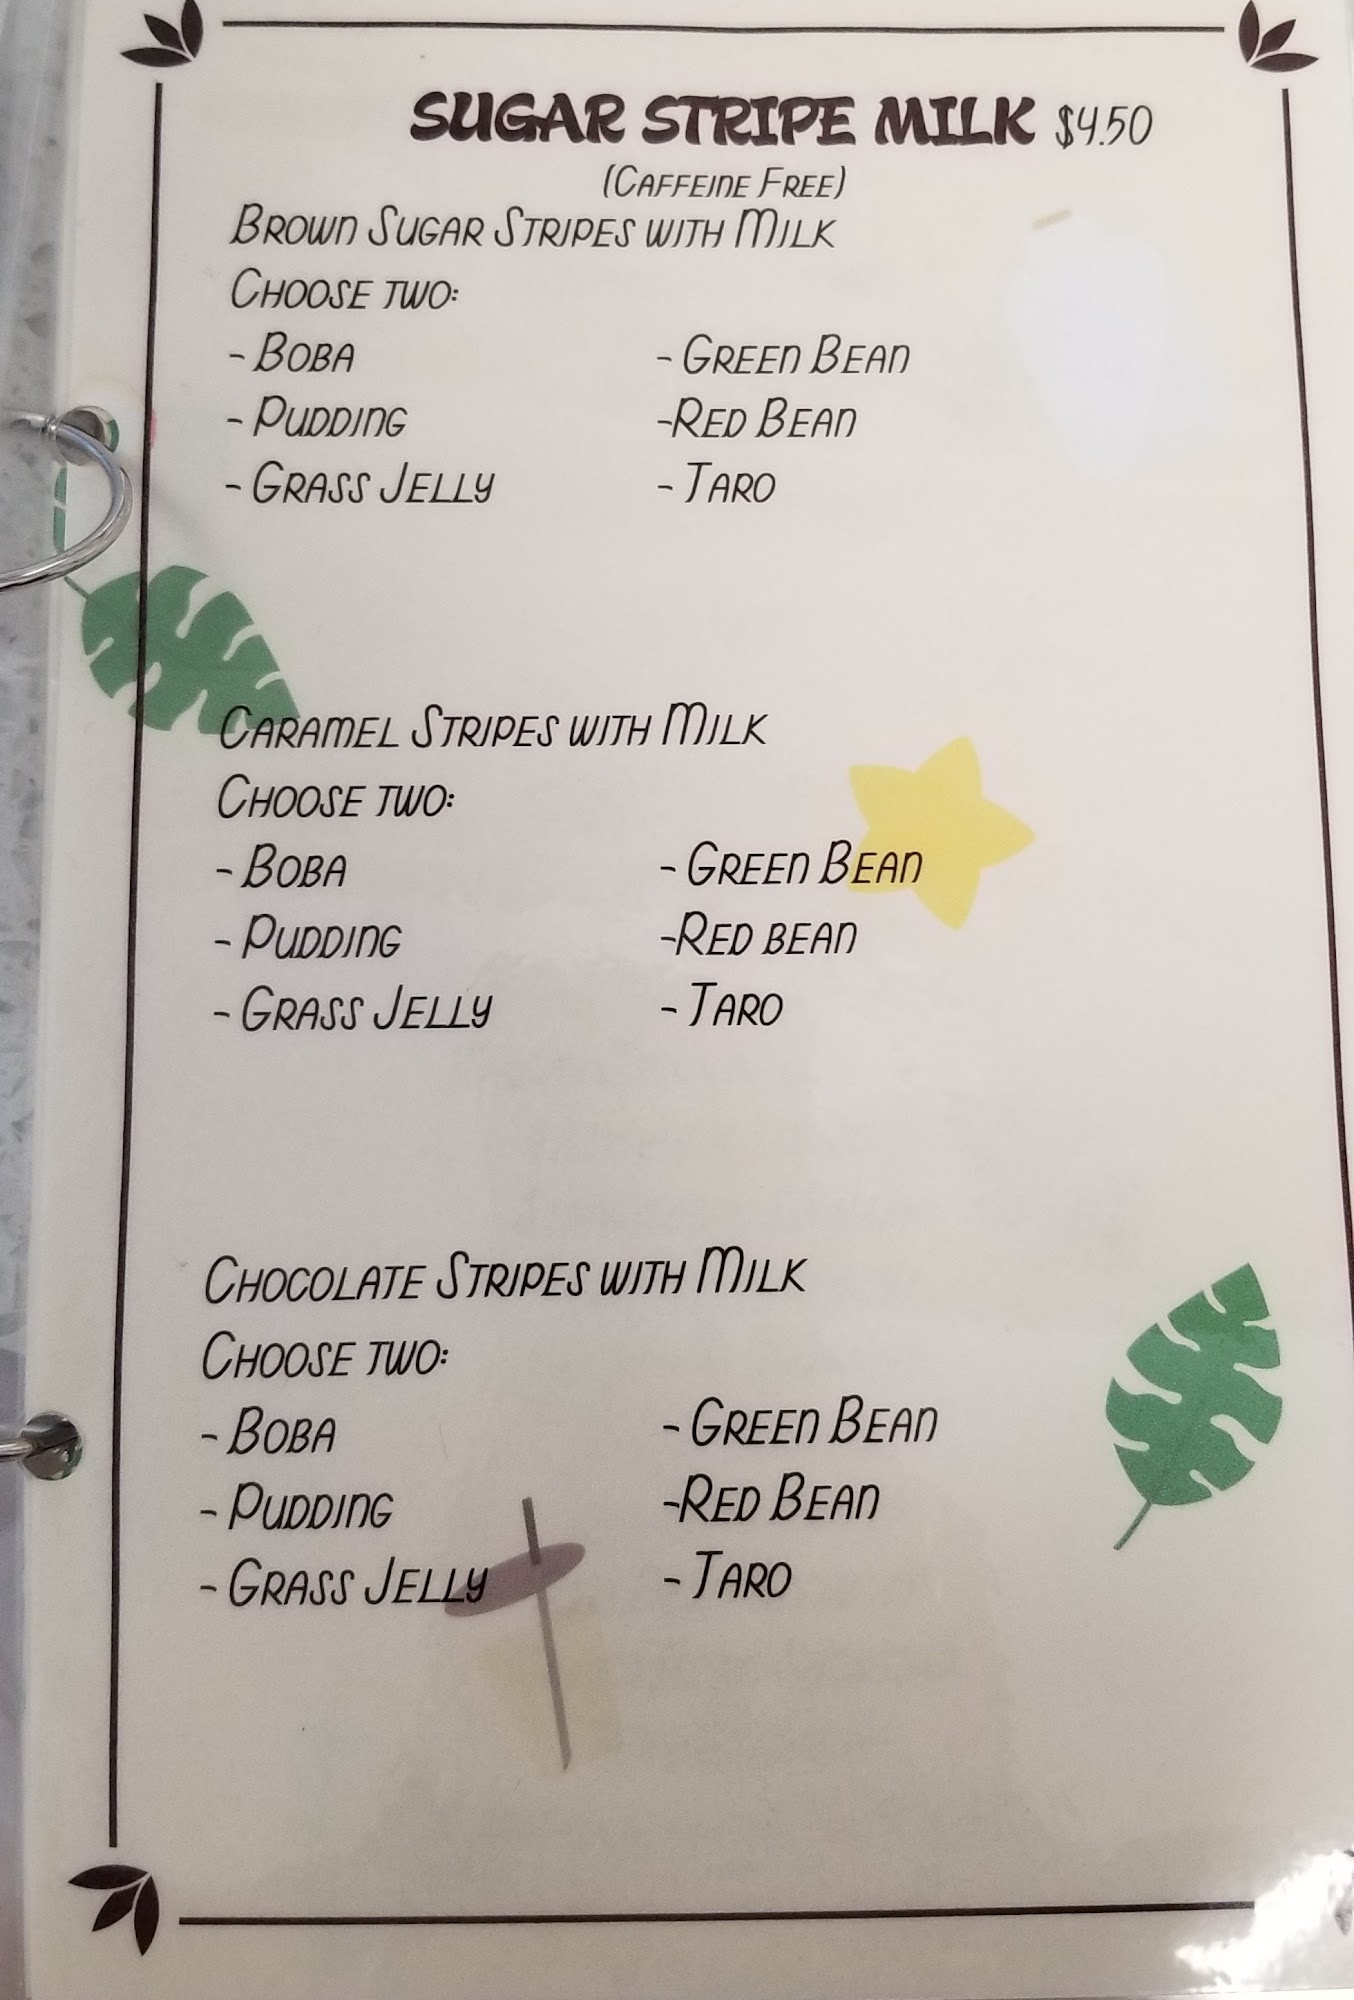 SUGAR STRIPE MILK $4.50
(CAFFEINE FREE)
BROWN SUGAR STRIPES WITH MILK
CHOOSE TWO:
- BOBA
- PUDDING
- GRASS JELLY
- GREEN BEAN
-RED BEAN
- TARO
CARAMEL STRIPES WITH MILK
CHOOSE TWO:
- BOBA
- PUDDING
- GRASS JELLY
- GREEN BEAN
-RED BEAN
- TARO
CHOCOLATE STRIPES WITH MILK
CHOOSE TWO:
- BOBA
- PUDDING
- GRASS JELLY
- GREEN BEAN
-RED BEAN
- TARO